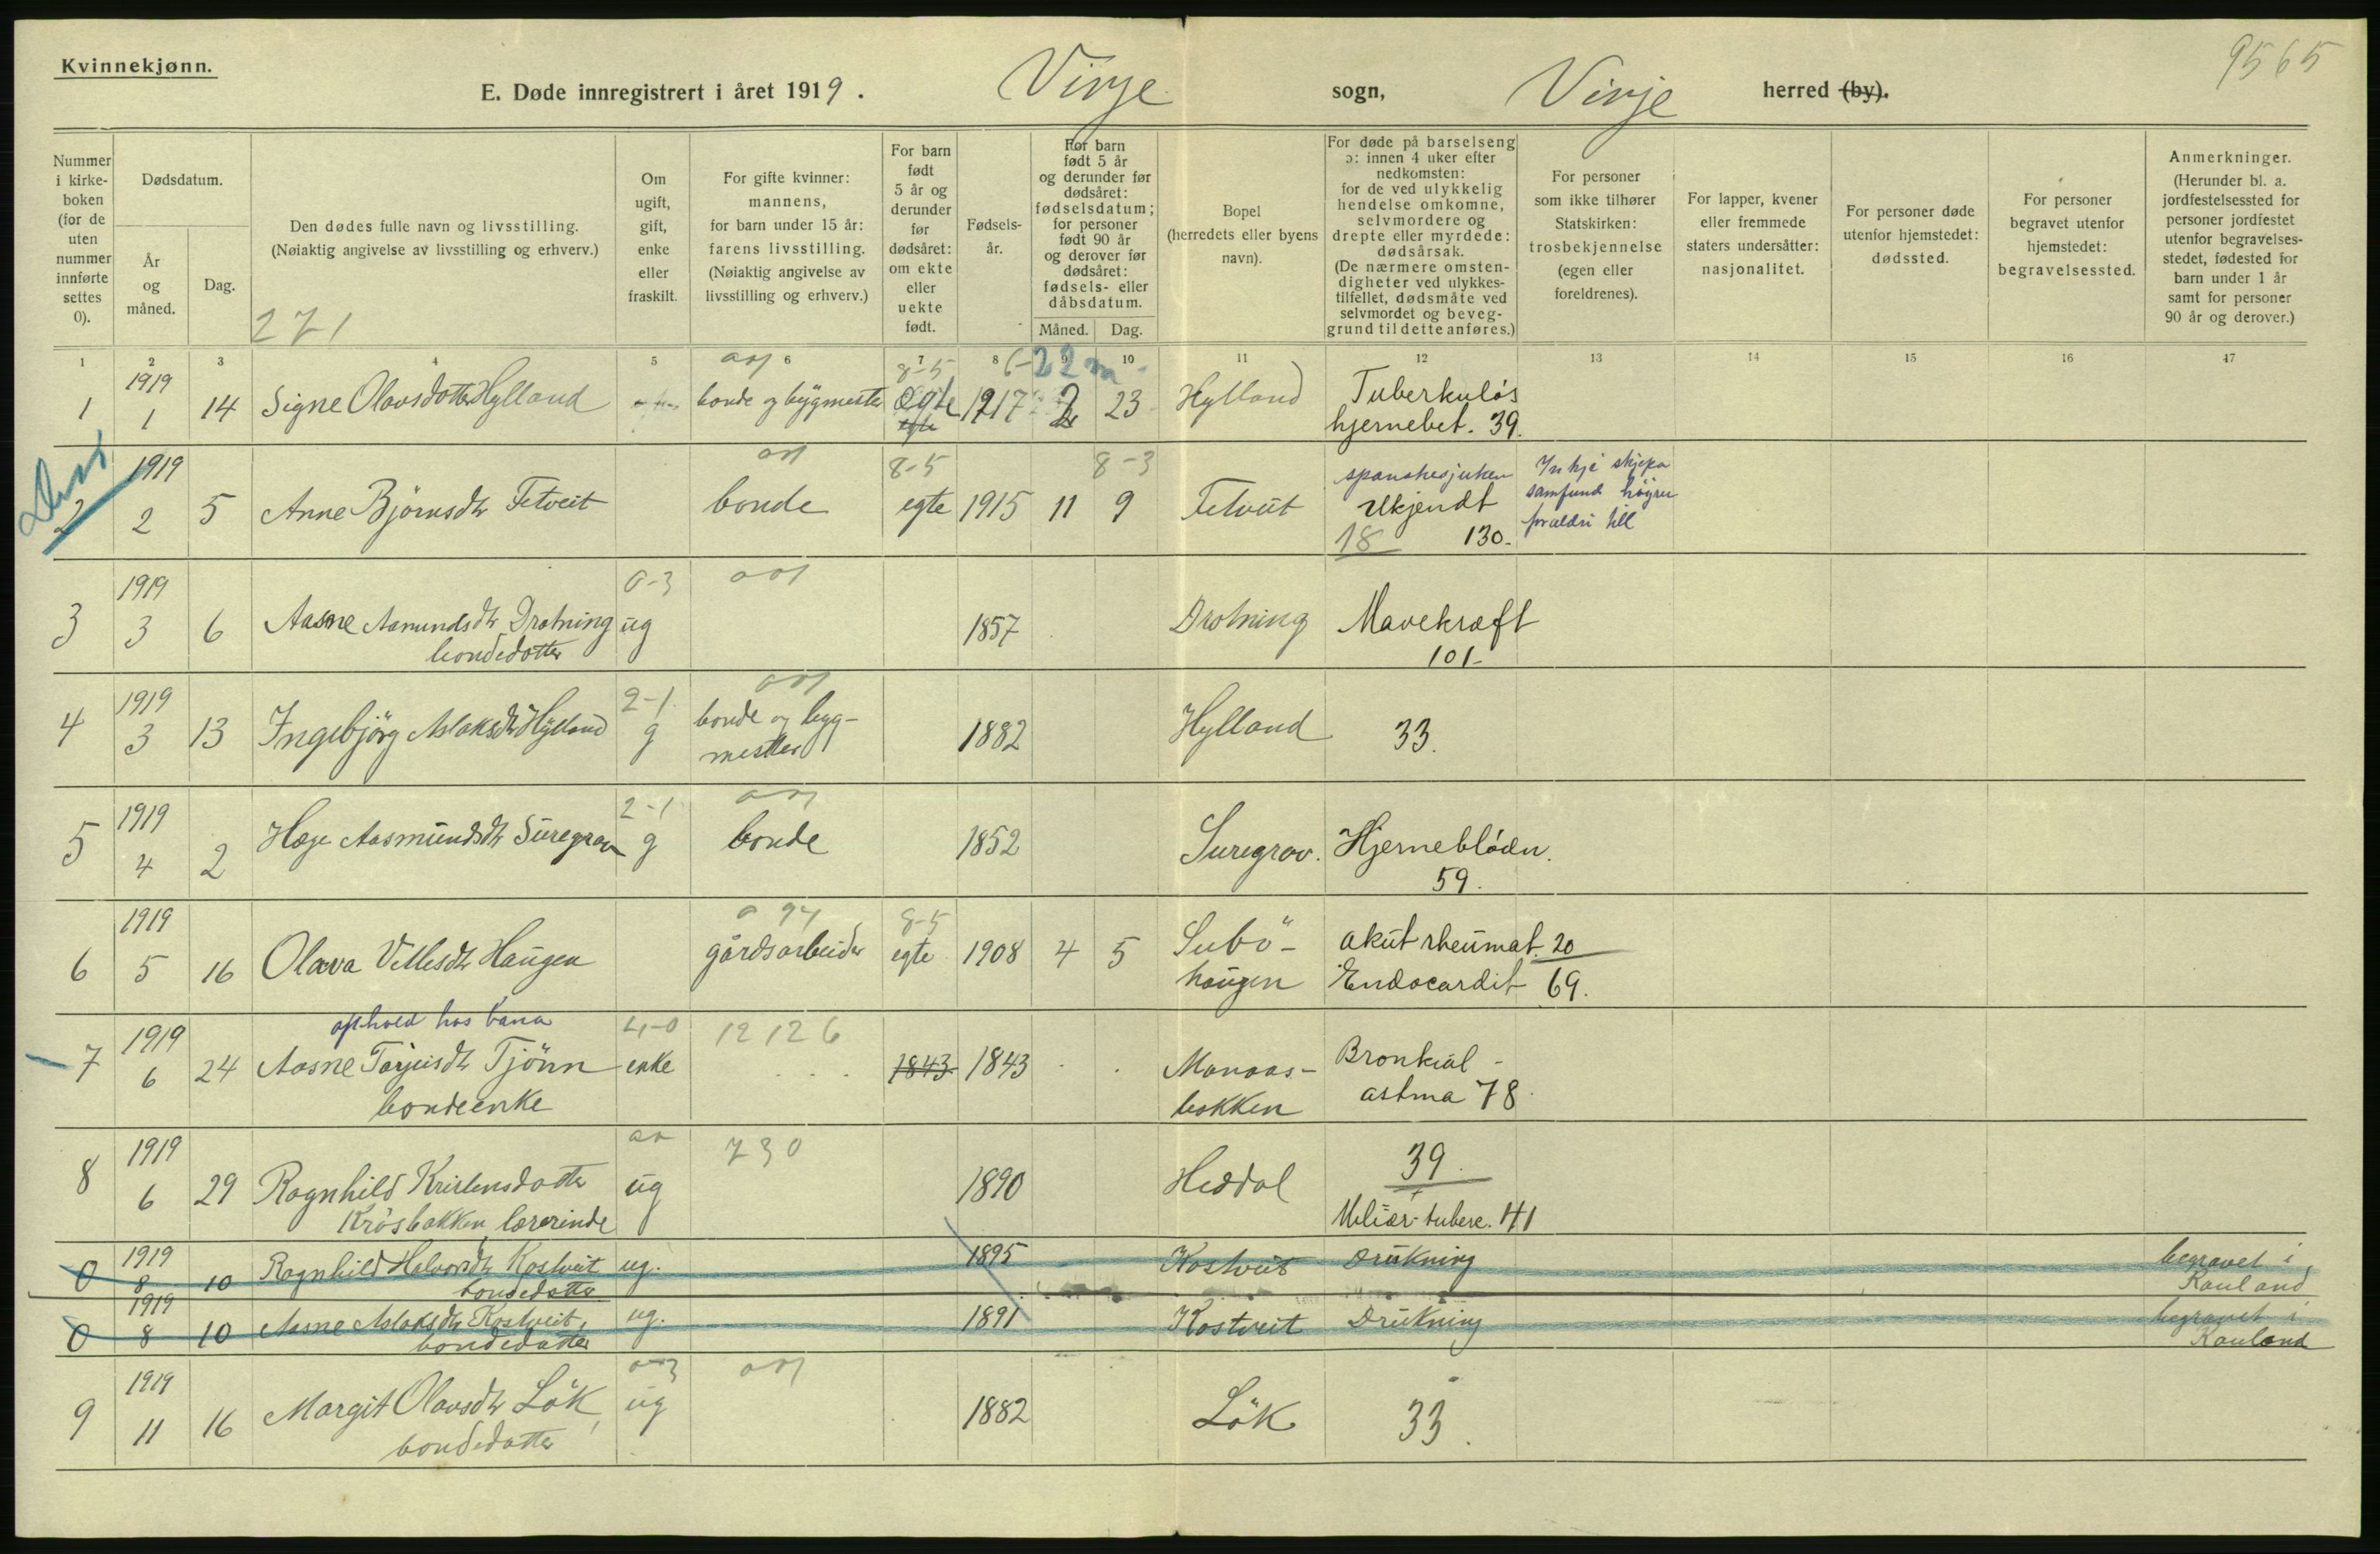 Kvinnekjønn.
9565
E. Døde innregistrert i året 1919. Vinje sogn, Vinje herred (by).
Nummer i kirkeboken (for de uten nummer innførte settes 0).
Dødsdatum.
År og måned.
Dag.
Den dødes fulle navn og livsstilling. (Nøiaktig angivelse av livsstilling og erhverv.)
271
Om ugift, gift, enke eller fraskilt.
For gifte kvinner: mannens, for barn under 15 år: farens livsstilling. (Nøiaktig angivelse av livsstilling og erhverv.)
For barn født 5 år og derunder før dødsåret: om ekte eller uekte født.
Fødselsår.
For barn født 5 år og derunder før dødsåret: fødselsdatum; for personer født 90 år og derover før dødsåret: fødsels- eller dåbsdatum.
Måned. Dag.
Bopel (herredets eller byens navn).
For døde på barselseng ɔ: innen 4 uker efter nedkomsten: for de ved ulykkelig hendelse omkomne, selvmordere og drepte eller myrdede: dødsårsak. (De nærmere omstendigheter ved ulykkestilfellet, dødsmåte ved selvmordet og beveggrund til dette anføres.)
For personer som ikke tilhører Statskirken: trosbekjennelse (egen eller foreldrenes).
For lapper, kvener eller fremmede staters undersåtter: nasjonalitet.
For personer døde utenfor hjemstedet: dødssted.
For personer begravet utenfor hjemstedet: begravelsessted.
Anmerkninger. (Herunder bl. a. jordfestelsessted for personer jordfestet utenfor begravelsesstedet, fødested for barn under 1 år samt for personer 90 år og derover.)
1 2 3 4 5 6 7 8 9 10 11 12 13 14 15 16 47
8-5 22 m
1 1919 1 14 Signe Olavsdotter Hylland bonde og bygmester egte 1917 2 23 Hylland Tuberkuløs
hjernebet. 39.
8-5 8-3
2 1919 2 5 Anne Björnsdtr Fetveit bonde egte 1915 11 9 Fetveit spanskesjuken
Ukjendt
18 130.
Inkje skjepa
samfund höyrer
foreldri till
0-3
3 1919 3 6 Aasne Aamundsdtr Drotning ug 1857 Drotning Mavekræft
bondedotter 101-
2-1
4 1919 3 13 Ingebjörg Aslaksdtr Hylland g bonde og bygg-
mester 1882 Hylland 33.
2-1
5 1919 4 2 Hæge Aasmundsdtr Suregrav g bonde 1852 Suregrav. Hjerneblödn.
59.
8-5
6 1919 5 16 Olava Vetlesdtr Haugen gårdsarbeider egte 1908 4 5 Subö-
haugen akut rheumat. 20
Endocardit 69.
ophold hos bana
4-0 12126
7 1919 6 24 Aasne Tarjeisdtr Tjönn enke 1843 1843 Manaas-
bakken Bronkial-
astma 78.
bondeenke
730
8 1919 6 29 Ragnhild Kristensdotter ug 1890 Heddal 39.
Krösbakken, lærerinde Miliær-tuberc. 41
0 1919 8 10 Ragnhild Halvorsdtr Kostveit ug. 1895 Kostveit Drukning begravet i
bondedotter Rauland
0 1919 8 10 Aasne Aslaksdtr Kostveit, ug. 1891 Kostveit Drukning begravet i
bondedotter Rauland
9 1919 11 16 Margit Olavsdtr Lök, ug 1882 Lök 33.
bondedotter